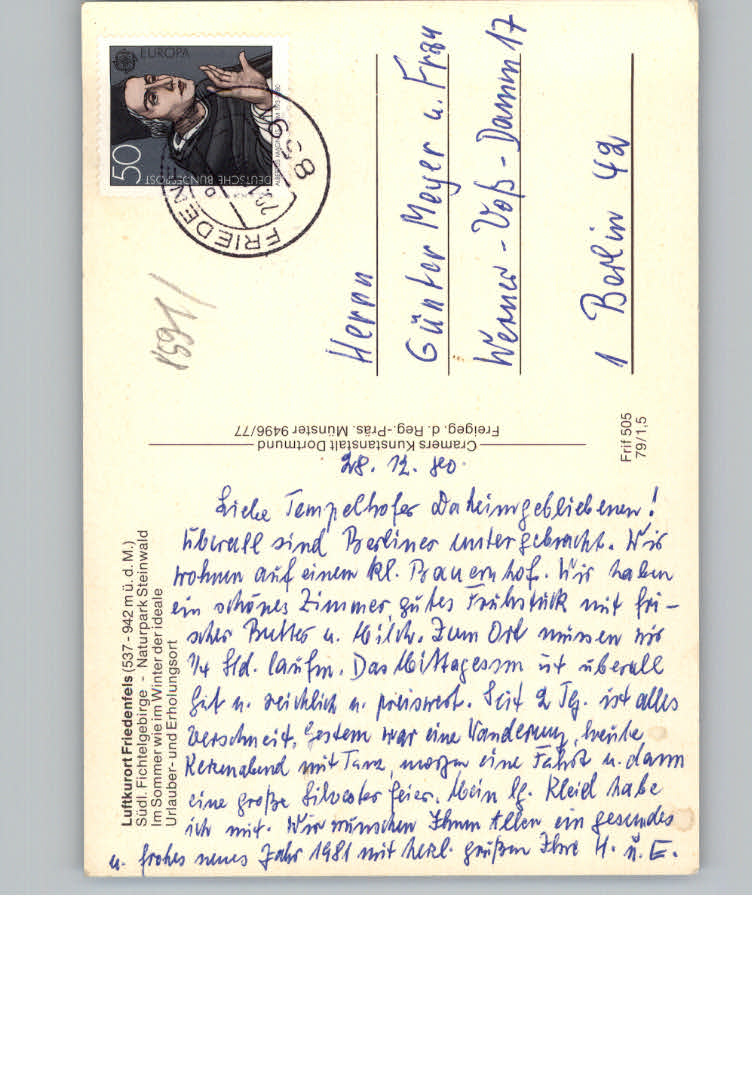 Luftkurort Friedenfels (537 - 942 m ü. d. M.)
Südl. Fichtelgebirge - Naturpark Steinwald
Im Sommer wie im Winter der ideale
Urlauber- und Erholungsort
28. 12. 80.
Liebe Tempelhofer Daheimgebliebenen!
Überall sind Berliner untergebracht. Wir
wohnen auf einem kl. Bauernhof. Wir haben
ein schönes Zimmer gutes Frühstück mit fri-
scher Butter u. Milch. Zum Ort müssen wir
1/4 Std. laufen. Das Mittagessen ist überall
gut u. reichlich u. preiswert. Seit 2 Tg. ist alles
verschneit, gestern war eine Wanderung, heute
Kerzenabend mit Tanz, morgen eine Fahrt u. dann
eine große Silvesterfeier. Mein lg. Kleid habe
ich mit. Wir wünschen Ihnen Allen ein gesundes
u. frohes neues Jahr 1981 mit herzl. grüßen Ihre H. u. E.
Cramers Kunstanstalt Dortmund
Freigeg. d. Reg.-Präs. Münster 9496/77
Frif 505
79/1,5
EUROPA
50
DEUTSCHE BUNDESPOST
FRIEDEN
8591
Herrn
Günter Meyer u. Frau
Werner-Voß-Damm 17
1 Berlin 42